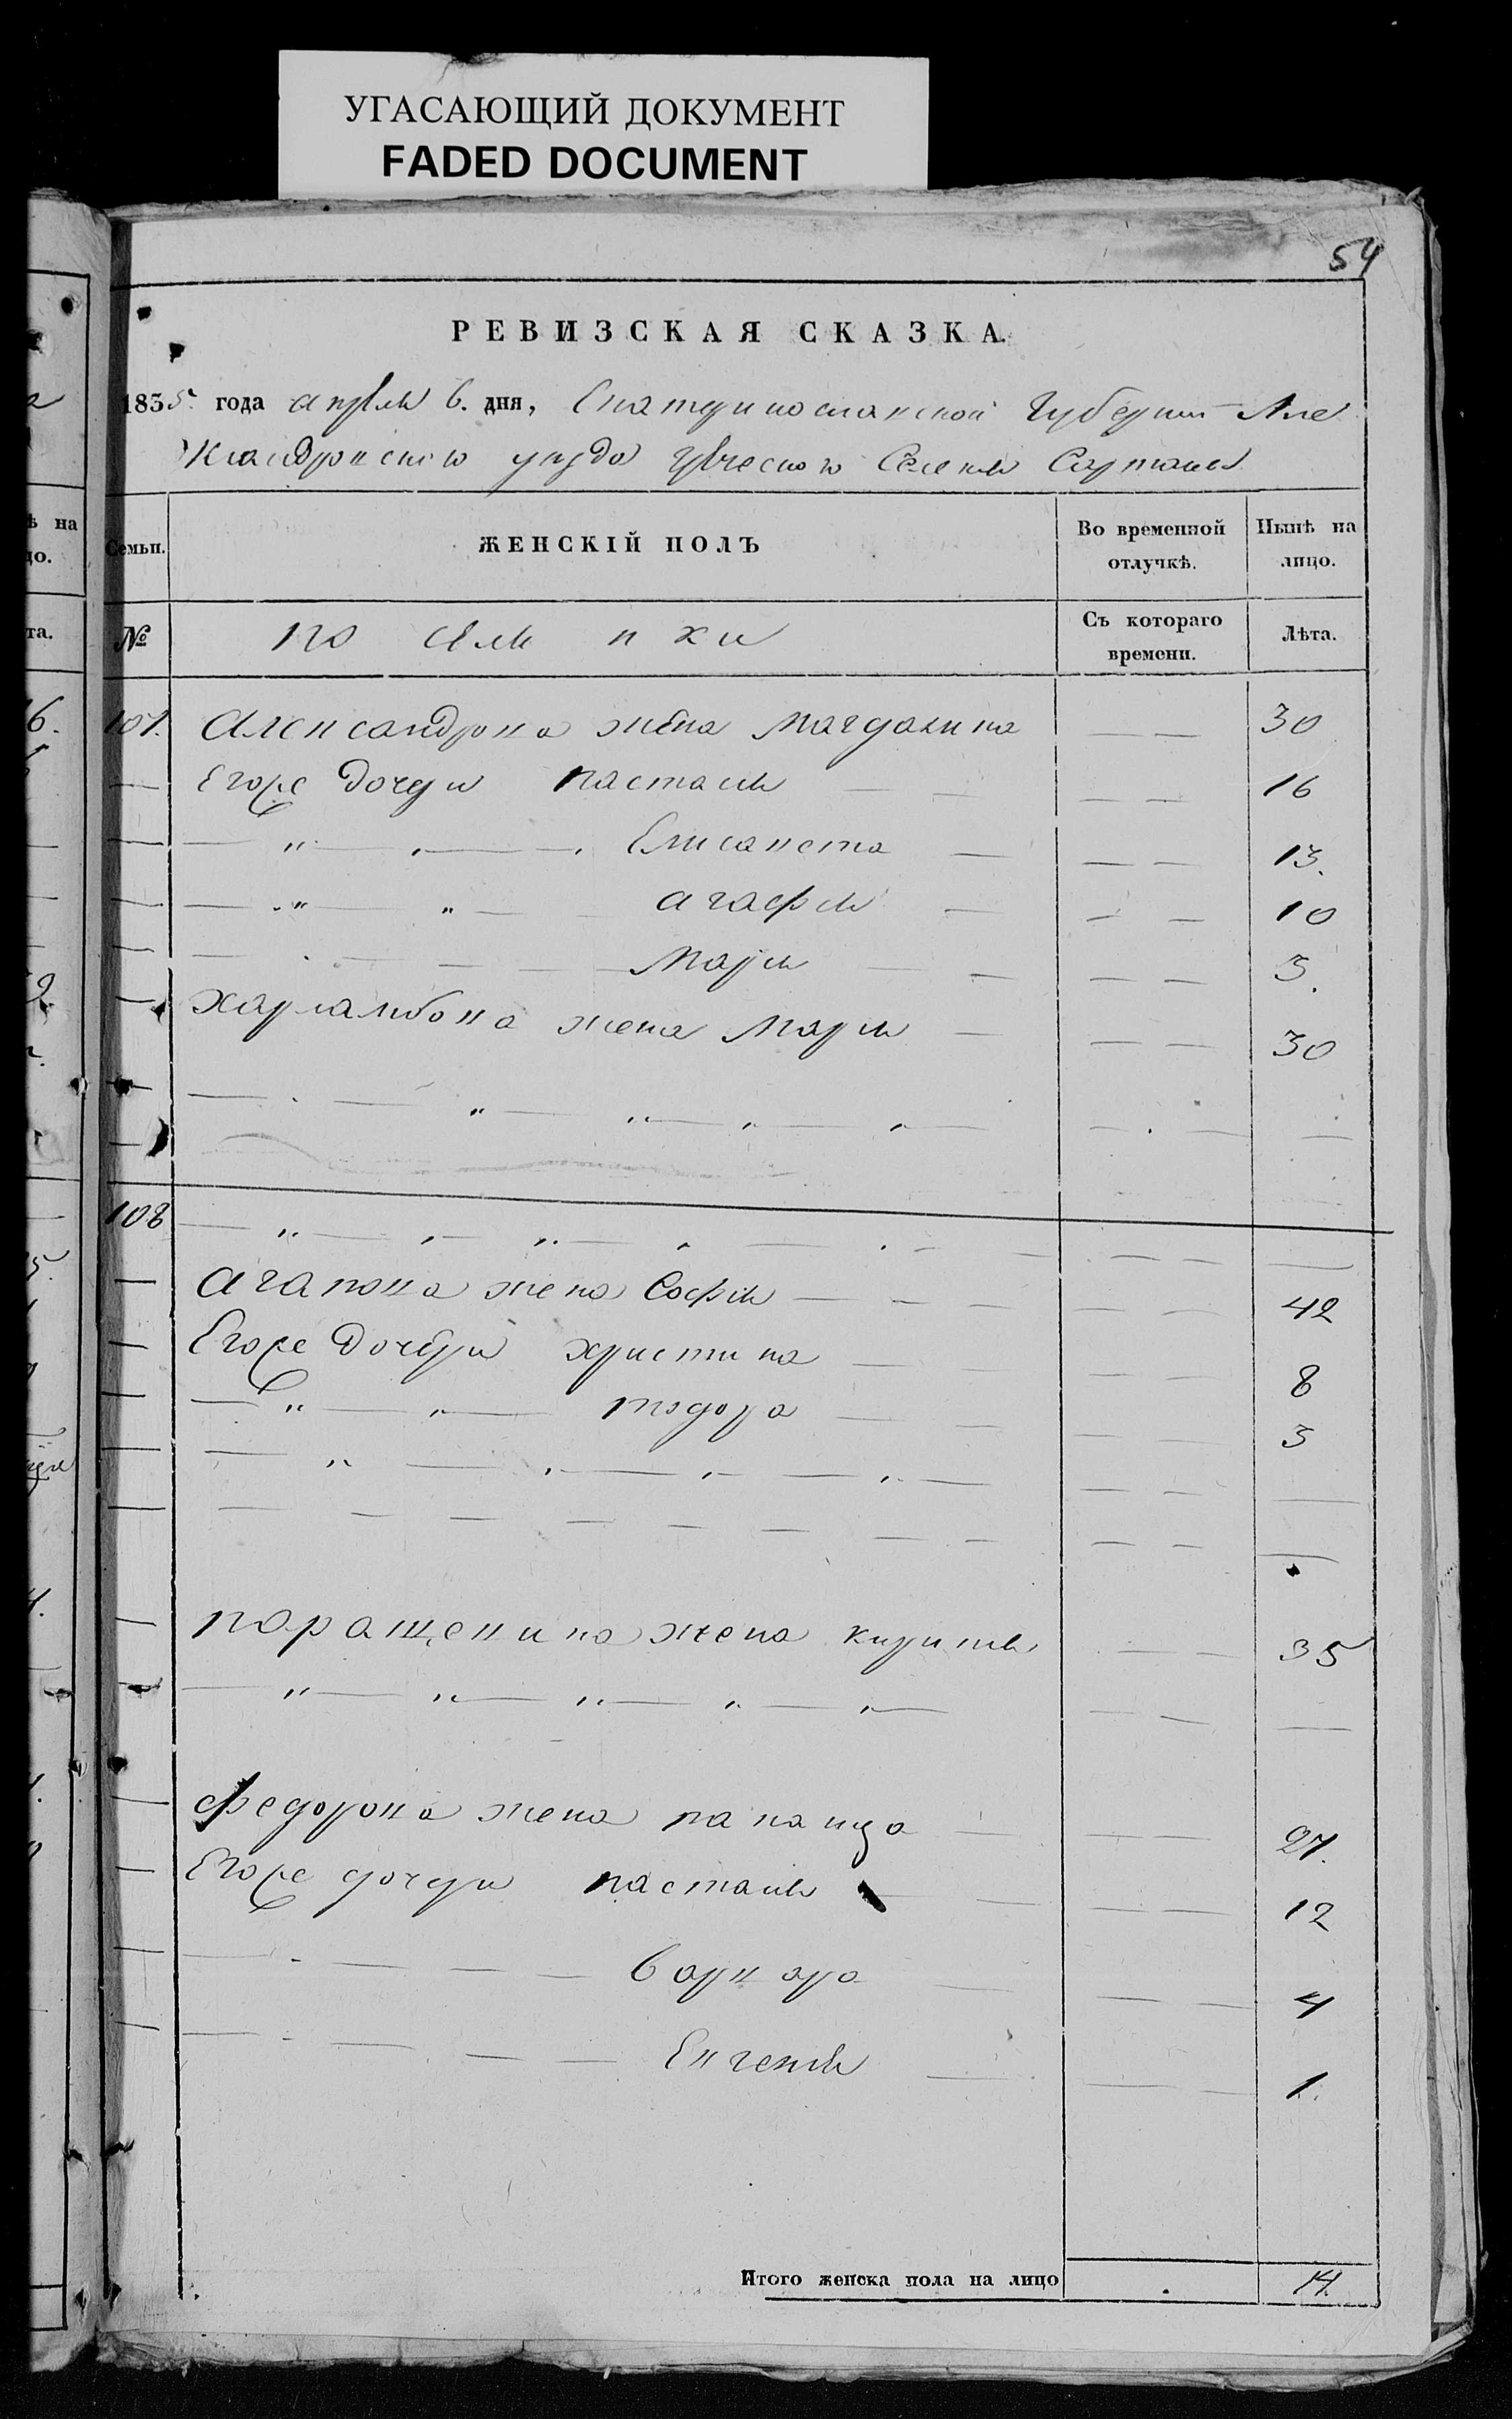 УГАСАЮЩИЙ ДОКУМЕНТ
FADED DOCUMENT
54
РЕВИЗСКАЯ СКАЗКА.
1835. года апреля 6. дня, Екатеринославской Губернии Але
Ксандровского уезда Греческого Селения Сартаны
Семьи.
ЖЕНСКІЙ ПОЛЪ
Во временной отлучкѣ.
Нынѣ на лицо.
№
поселянки
Съ котораго времени.
Лѣта.
107. Александрова жена Магдалина 30
Егоже дочери настасия 16
Елисавета 13.
агафия 10
Мария 3.
харламбова жена Мария 30
108
агапова жена София 42
Егоже дочери христина 8
тодора 3
паращевина жена 35
федорова жена 27.
Егоже дочери настасия 12
варвара 4
Евгения 1.
Итого женска пола на лицо 14.